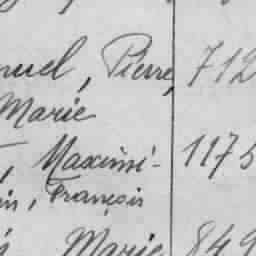 nuel, Pierre, 712
Marie
, Maximi- 1175
in, François
Marie 849